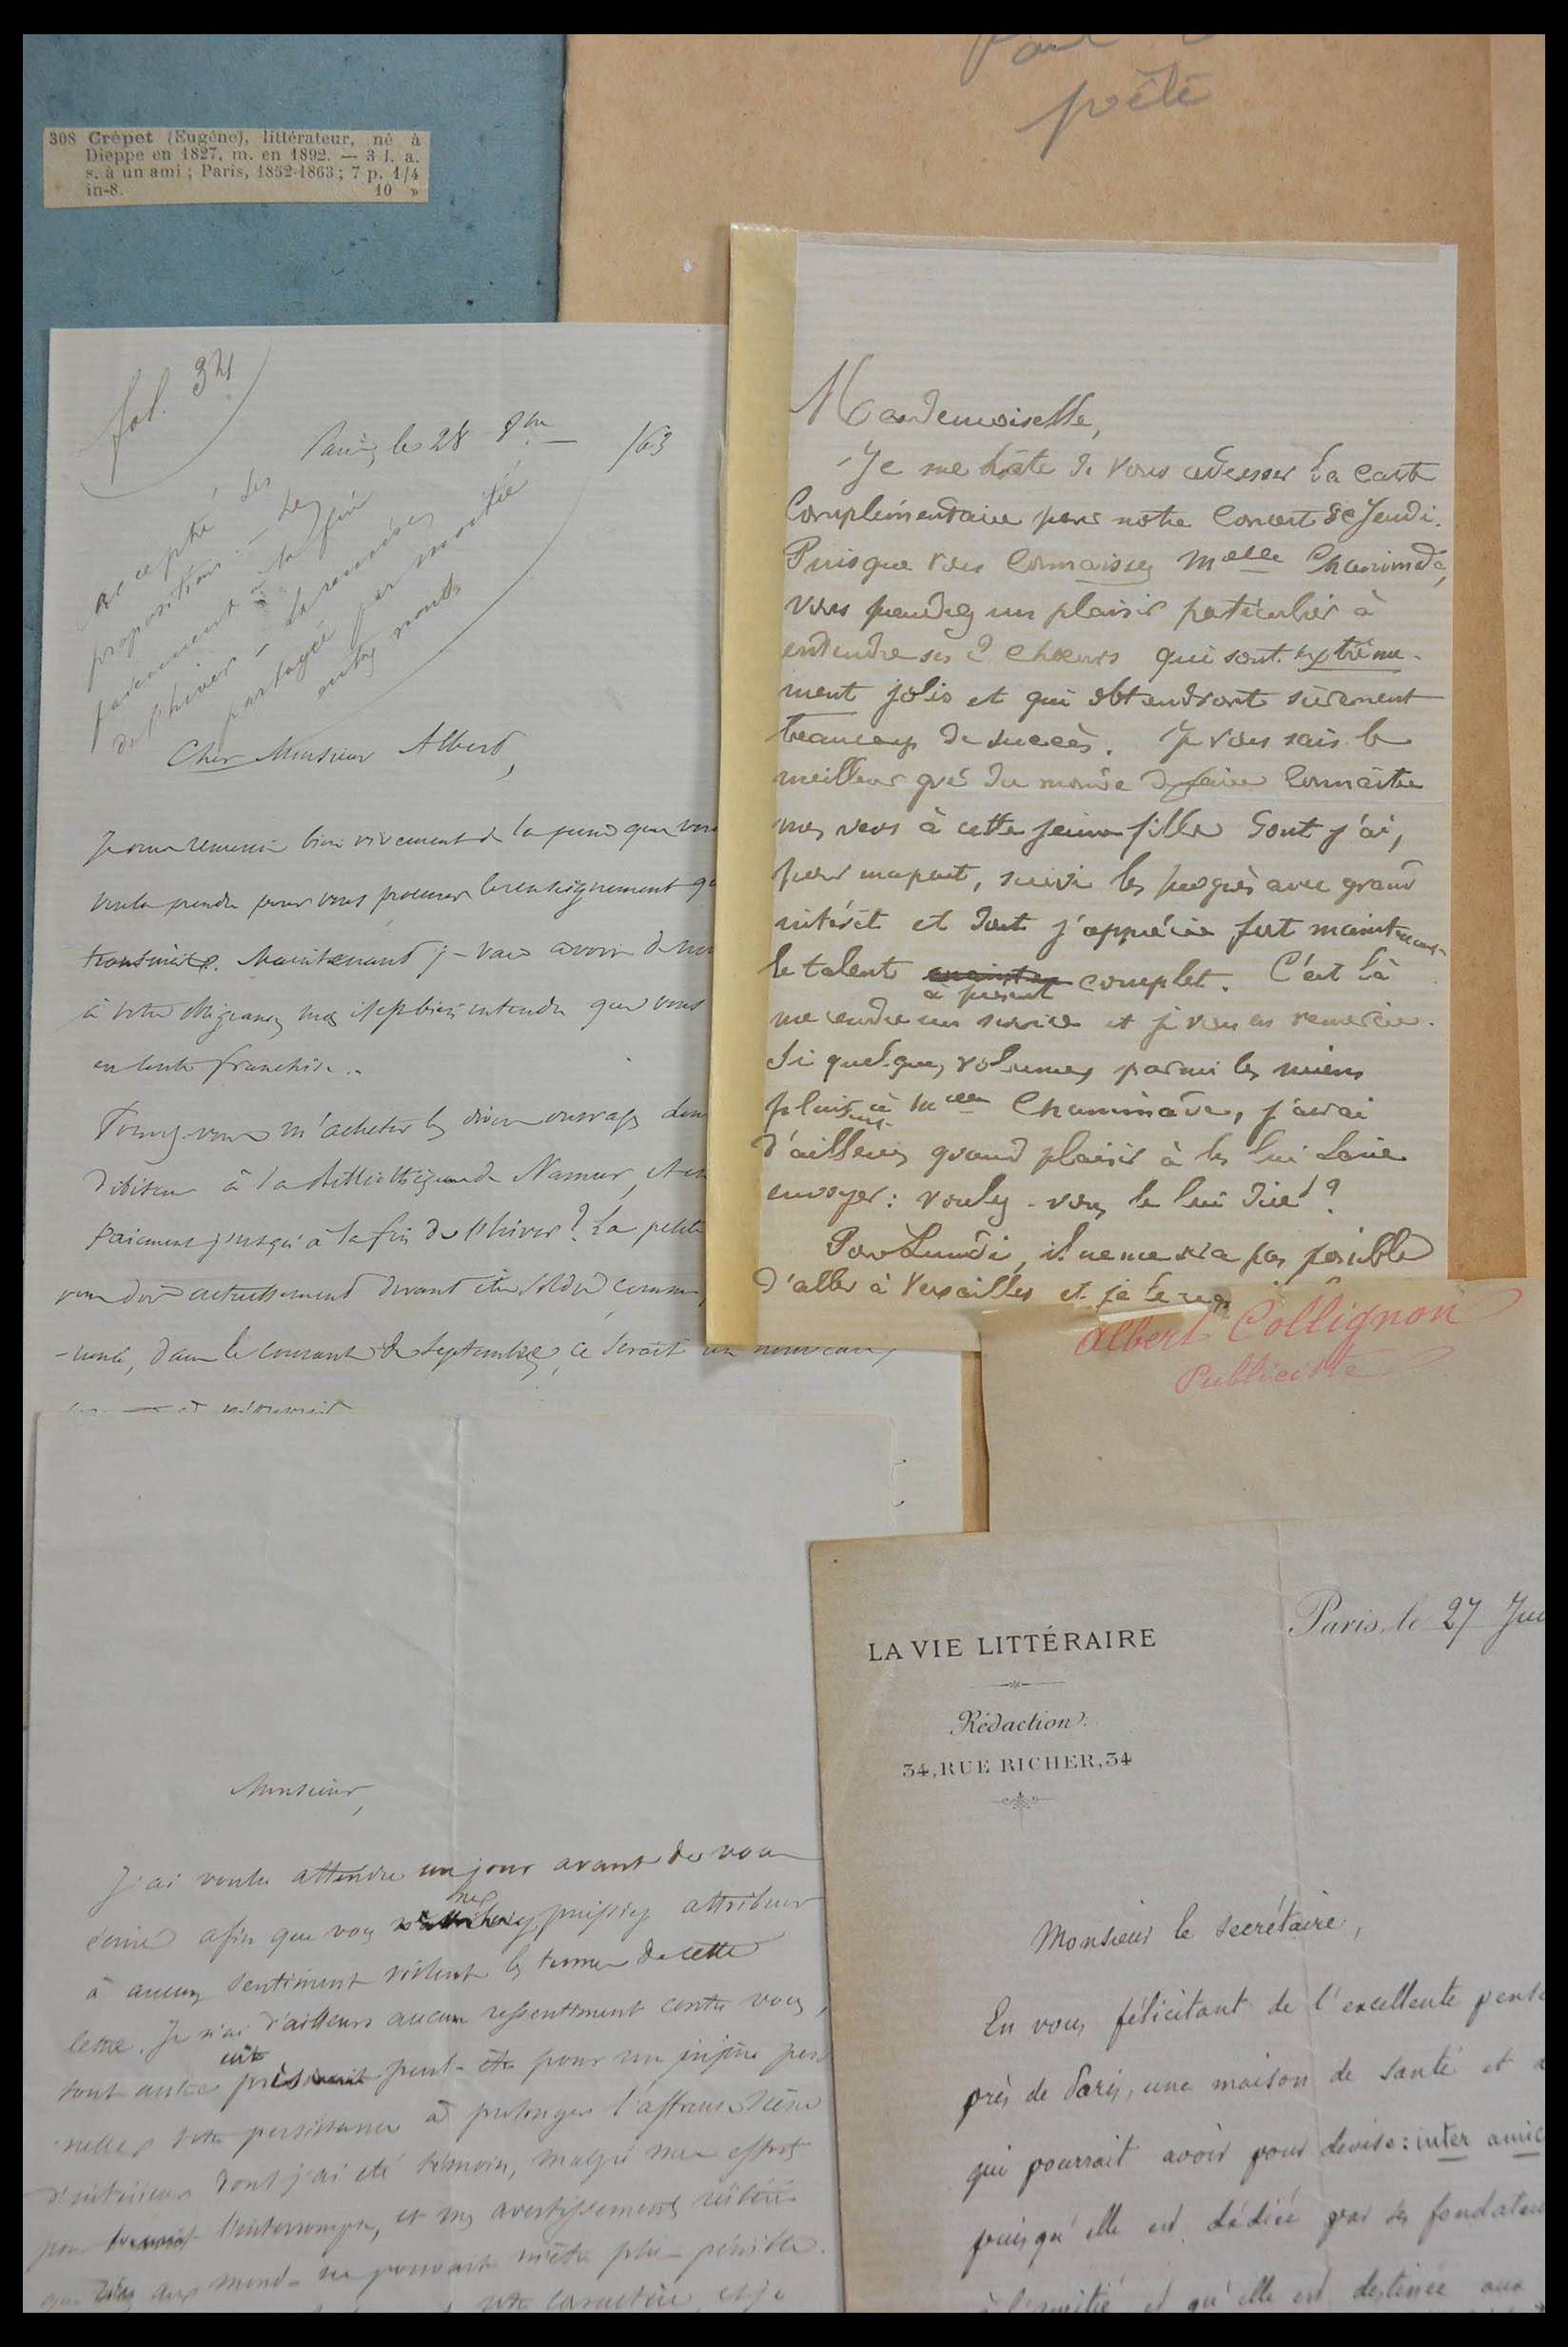 308 Crépet (Eugène), littérateur, né à
Dieppe en 1827, m. en 1892. — 3 l. a.
s. à un ami ; Paris, 1852-1863 ; 7 p. 1/4
in-8. 10 »
poète
fol. 34
Paris, le 28 8bre /63
accepté les
propositions : — les
paiement à la fin
de l'hiver — la remise
partagée par moitié
entre nous
Cher Monsieur Albert,
bien vivement de la peine que vous
voulu prendre pour vous procurer le renseignement
transmis. Maintenant je vais avoir
à votre obligeance, mais il est bien entendu que vous
en toute franchise.
m'acheter les divers ouvrages
à la Bibliothèque de Namur, et
paiement jusqu'à la fin de l'hiver ? La petite
actuellement devant être soldée comme
dans le courant de Septembre, ce serait un nouveau
Mademoiselle,
Je me hâte de vous adresser la carte
complémentaire pour notre concert de Jeudi.
Puisque vous connaissez Melle Chaminade,
vous prendrez un plaisir particulier à
entendre ses 2 chœurs qui sont extrême-
ment jolis et qui obtiendront sûrement
beaucoup de succès. Je vous sais le
meilleur gré du monde de faire connaître
mes vers à cette jeune fille dont j'ai,
pour ma part, suivi les progrès avec grand
intérêt et dont j'apprécie fort maintenant
le talent à présent complet. C'est là
me rendre un service et je vous en remercie.
Si quelques volumes parmi les miens
plaisent à Melle Chaminade, j'aurai
d'ailleurs grand plaisir à les lui faire
envoyer : voulez-vous le lui dire ?
Pour Lundi, il ne me sera pas possible
d'aller à Versailles et je le
Albert Collignon
Publiciste
Monsieur,
J'ai voulu attendre un jour avant de vous
écrire afin que vous ne puissiez attribuer
à aucun sentiment violent les termes de cette
lettre. Je n'ai d'ailleurs aucun ressentiment contre vous,
tout autre eût pris peut-être pour une injure person
nelle votre persistance à prolonger l'affreuse scène
d'intérieur dont j'ai été témoin, malgré mes efforts
pour l'interrompre, et mes avertissements réitérés
que rien au monde ne pouvait m'être plus pénible.
votre caractère, et je
LA VIE LITTÉRAIRE
Rédaction :
34, RUE RICHER, 34
Paris, le 27
Monsieur le secrétaire,
En vous félicitant de l'excellente pensé
près de Paris, une maison de santé et
qui pourrait avoir pour devise : inter amic
puisqu'elle est dédiée par ses fondateu
à l'amitié et qu'elle est destinée aux